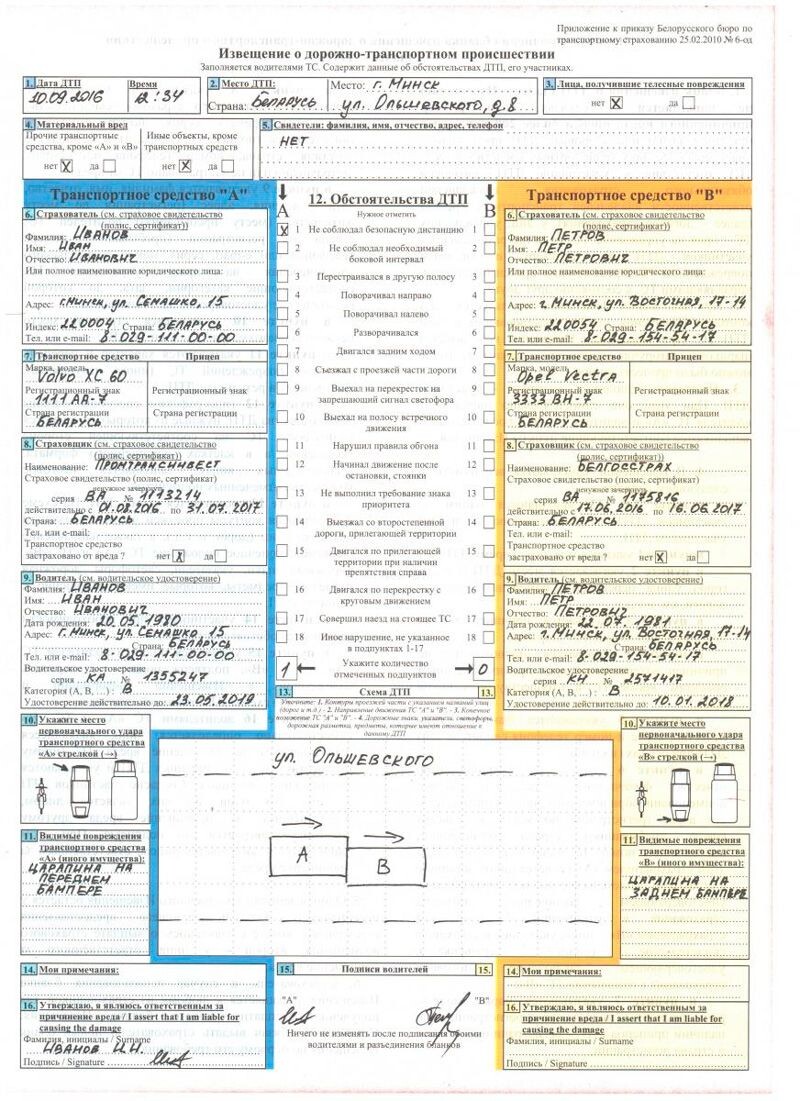 Приложение к приказу Белорусского бюро по
транспортному страхованию 25.02.2010 № 6-од
Извещение о дорожно-транспортном происшествии
Заполняется водителями ТС. Содержит данные об обстоятельствах ДТП, его участниках.
1. Дата ДТП Время
10.09.2016 12:34
2. Место ДТП: Место: г. Минск
Страна: Беларусь ул. Ольшевского, д.8
3. Лица, получившие телесные повреждения
нет X да
4. Материальный вред
Прочие транспортные средства, кроме «А» и «В»
нет X да
Иные объекты, кроме транспортных средств
нет X да
5. Свидетели: фамилия, имя, отчество, адрес, телефон
НЕТ
Транспортное средство "А"
6. Страхователь (см. страховое свидетельство
(полис, сертификат))
Фамилия: Иванов
Имя: Иван
Отчество: Иванович
Или полное наименование юридического лица:
Адрес: г.Минск, ул. Семашко, 15
Индекс: 220004 Страна: Беларусь
Тел. или e-mail: 8-029-111-00-00
7. Транспортное средство Прицеп
Марка, модель
Volvo XC 60
Регистрационный знак Регистрационный знак
1111 АА-7
Страна регистрации Страна регистрации
Беларусь
8. Страховщик (см. страховое свидетельство
(полис, сертификат))
Наименование: Промтрансинвест
Страховое свидетельство (полис, сертификат)
ненужное зачеркнуть
серия ВА № 1113214
действительно с 01.08.2016 по 31.07.2017
Страна: Беларусь
Тел. или e-mail:
Транспортное средство
застраховано от вреда ? нет X да
9. Водитель (см. водительское удостоверение)
Фамилия: Иванов
Имя: Иван
Отчество: Иванович
Дата рождения: 20.05.1980
Адрес: г.Минск, ул. Семашко, 15
Страна: Беларусь
Тел. или e-mail: 8-029-111-00-00
Водительское удостоверение
серия КА № 1355247
Категория (А, В, ... ): В
Удостоверение действительно до: 23.05.2019
10. Укажите место
первоначального удара
транспортного средства
«А» стрелкой (→)
11. Видимые повреждения
транспортного средства
«А» (иного имущества):
Царапина на
переднем
бампере
14. Мои примечания:
16. Утверждаю, я являюсь ответственным за
причинение вреда / I assert that I am liable for
causing the damage
Фамилия, инициалы / Surname
Иванов И.И.
Подпись / Signature
А 12. Обстоятельства ДТП В
Нужное отметить
X 1 Не соблюдал безопасную дистанцию 1
2 Не соблюдал необходимый 2
боковой интервал
3 Перестраивался в другую полосу 3
4 Поворачивал направо 4
5 Поворачивал налево 5
6 Разворачивался 6
7 Двигался задним ходом 7
8 Съезжал с проезжей части дороги 8
9 Выехал на перекресток на 9
запрещающий сигнал светофора
10 Выехал на полосу встречного 10
движения
11 Нарушил правила обгона 11
12 Начинал движение после 12
остановки, стоянки
13 Не выполнил требование знака 13
приоритета
14 Выезжал со второстепенной 14
дороги, прилегающей территории
15 Двигался по прилегающей 15
территории при наличии
препятствия справа
16 Двигался по перекрестку с 16
круговым движением
17 Совершил наезд на стоящее ТС 17
18 Иное нарушение, не указанное 18
в подпунктах 1-17
1 ← Укажите количество → 0
отмеченных подпунктов
13. Схема ДТП 13.
Уточните: 1. Контуры проезжей части с указанием названий улиц
(дорог и т.д.) - 2. Направление движения ТС "А" и "В" - 3. Конечное
положение ТС "А" и "В". - 4. Дорожные знаки, указатели, светофоры,
дорожная разметка, предметы, которые имеют отношение к
данному ДТП
ул. Ольшевского
А
В
15. Подписи водителей 15.
"А" "В"
Ничего не изменять после подписания обоими
водителями и разъединения бланков
Транспортное средство "В"
6. Страхователь (см. страховое свидетельство
(полис, сертификат))
Фамилия: Петров
Имя: Петр
Отчество: Петрович
Или полное наименование юридического лица:
Адрес: г. Минск, ул. Восточная, 17-14
Индекс: 220054 Страна: Беларусь
Тел. или e-mail: 8-029-154-54-17
7. Транспортное средство Прицеп
Марка, модель
Opel Vectra
Регистрационный знак Регистрационный знак
3333 ВН-7
Страна регистрации Страна регистрации
Беларусь
8. Страховщик (см. страховое свидетельство
(полис, сертификат))
Наименование: Белгосстрах
Страховое свидетельство (полис, сертификат)
ненужное зачеркнуть
серия ВА № 1175816
действительно с 17.06.2016 по 16.06.2017
Страна: Беларусь
Тел. или e-mail:
Транспортное средство
застраховано от вреда ? нет X да
9. Водитель (см. водительское удостоверение)
Фамилия: Петров
Имя: Петр
Отчество: Петрович
Дата рождения: 22.07.1981
Адрес: г. Минск, ул. Восточная, 17-14
Страна: Беларусь
Тел. или e-mail: 8-029-154-54-17
Водительское удостоверение
серия КН № 2571417
Категория (А, В, ... ): В
Удостоверение действительно до: 10.01.2018
10. Укажите место
первоначального удара
транспортного средства
«В» стрелкой (→)
11. Видимые повреждения
транспортного средства
«В» (иного имущества):
Царапина на
заднем бампере
14. Мои примечания:
16. Утверждаю, я являюсь ответственным за
причинение вреда / I assert that I am liable for
causing the damage
Фамилия, инициалы / Surname
Подпись / Signature